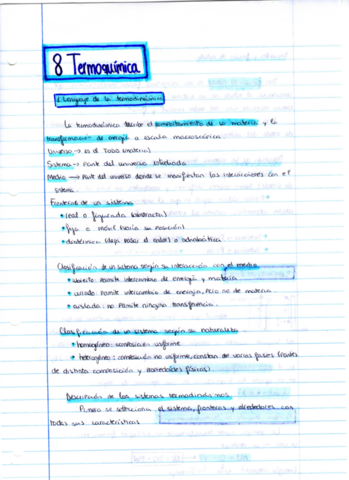 8 Termoquímica
1. Lenguaje de la termodinámica
La termodinámica describe el comportamiento de la materia y la
transformación de energía a escala macroscópica
Universo → es el Todo (materia)
Sistema → Parte del universo estudiada
Medio → Parte del universo donde se manifiestan las interacciones con el
sistema.
Fronteras de un sistema
• real o figurada (abstracta)
• fija o móvil (varía su posición)
• diatérmica (deja pasar el calor) o adiabática
Clasificación de un sistema según su interacción con el medio
• abierto: Permite intercambio de energía y materia
• cerrado: Permite intercambio de energía, pero no de materia
• aislada: no Permite ninguna transferencia.
Clasificación de un sistema según su naturaleza
• homogéneo: composición uniforme
• heterogéneo: composición no uniforme, constan de varias fases (partes
de distinta composición y propiedades físicas).
Descripción de los sistemas termodinámicos
Primero se selecciona el sistema, fronteras y alrededores con
todas sus características